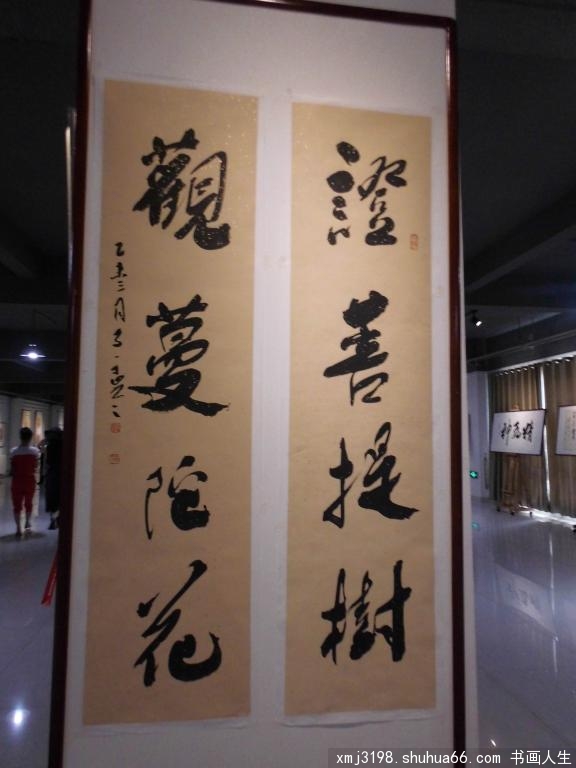 證菩提樹
觀蔓陀花
乙未三月
xmj3198.shuhua66.com 书画人生